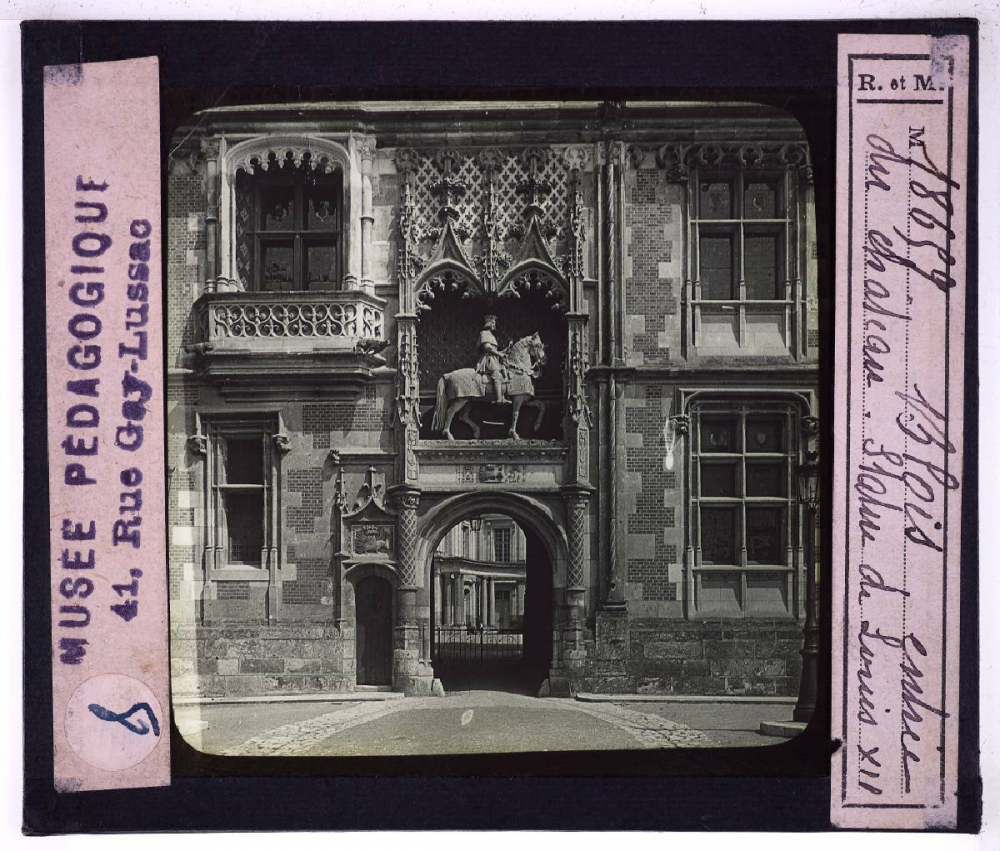 MUSÉE PÉDAGOGIQUE
41, Rue Gay-Lussac
8
R. et M.
M. 18659 Blois entrée
du chateau. Statue de Louis XII